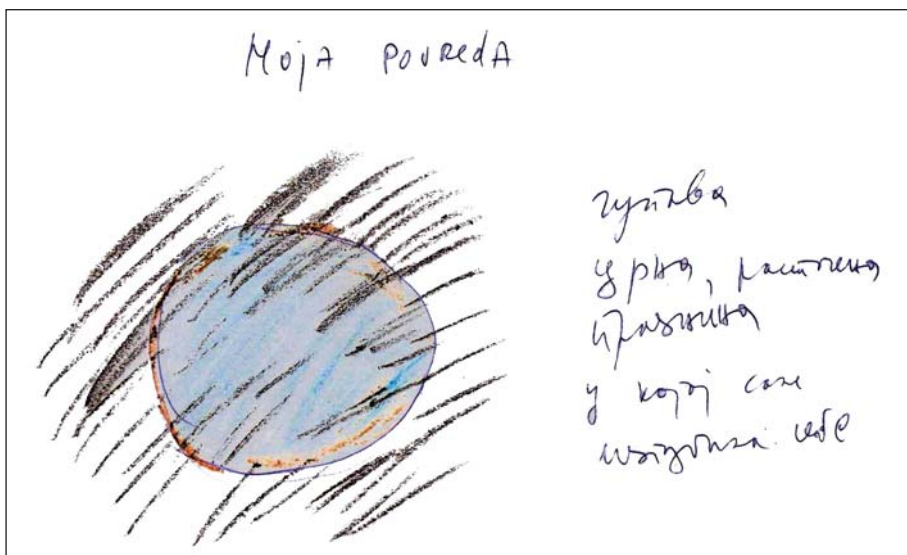 Moja povreda
гужва
црна, растегена
празнина
у којој сам
изгубила себе